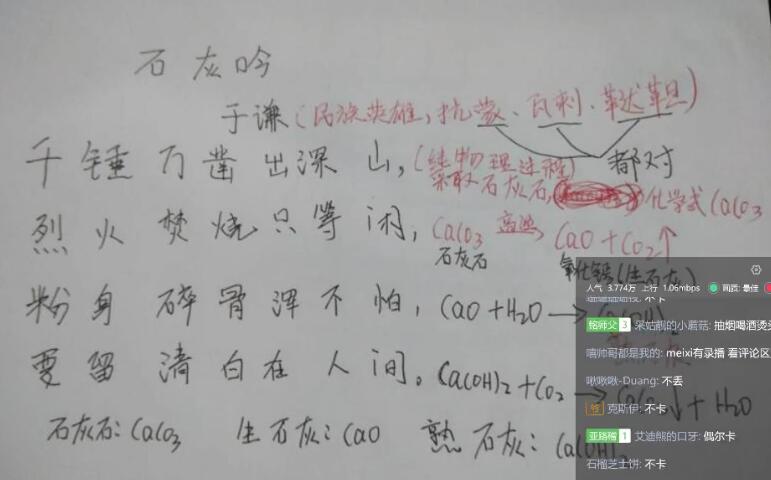 石灰吟
于谦(民族英雄,抗蒙、瓦剌、鞑靼)
都对
千锤万凿出深山,(纯物理过程)
采取石灰石,化学式CaCO3
烈火焚烧只等闲,CaCO3 高温 CaO+CO2↑
石灰石
氧化钙(生石灰)
粉身碎骨浑不怕,CaO+H2O→
要留清白在人间。Ca(OH)2+CO2→CaCO3↓+H2O
石灰石:CaCO3 生石灰:CaO 熟石灰:Ca(OH)2
人气 3.774万 上行 1.06mbps 画质: 最佳
不卡
铭师父 3 呆姑鹅的小蘑菇: 抽烟喝酒烫
嘻帅哥都是我的: meixi有录播 看评论区
啾啾啾-Duang: 不丢
克斯伊: 不卡
亚路福 1 艾迪熊的口牙: 偶尔卡
石榴芝士饼: 不卡